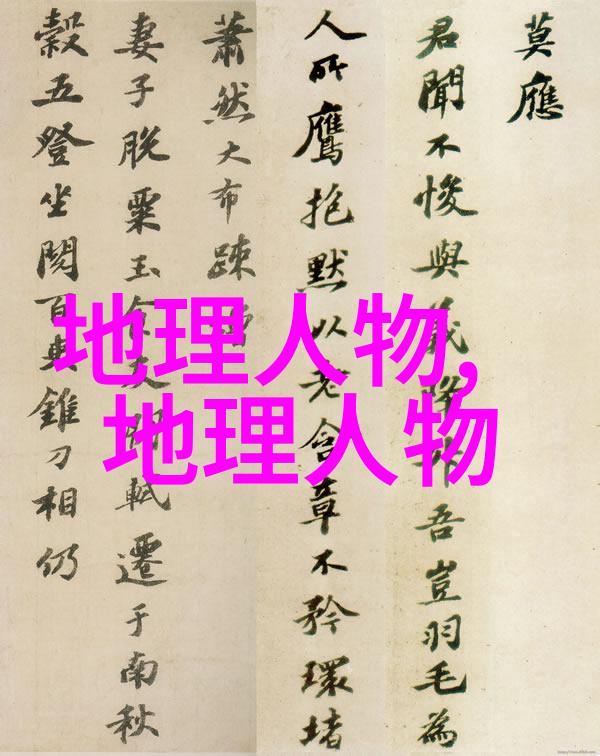 莫應
君聞不悛與義降升吾豈羽毛為
人所鷹抱默以老含章不矜環堵
蕭然大布疎
妻子脫粟玉食丈關軾遷于南秋
穀五登坐閱百與錐刀相仍
地理人物,
地理人物